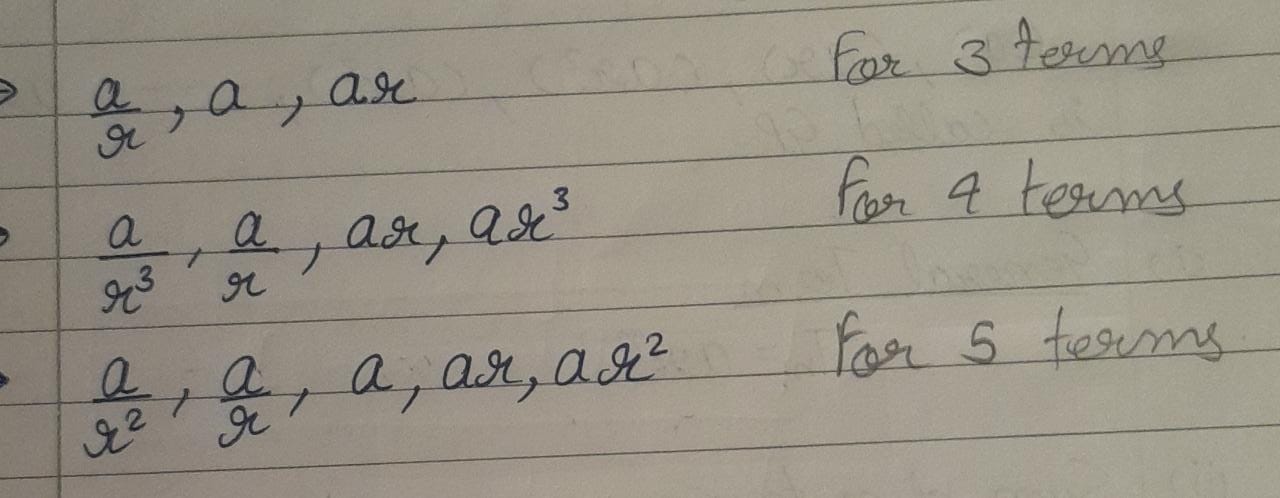 a/r, a, ar For 3 terms
a/r³, a/r, ar, ar³ For 4 terms
a/r², a/r, a, ar, ar² For 5 terms